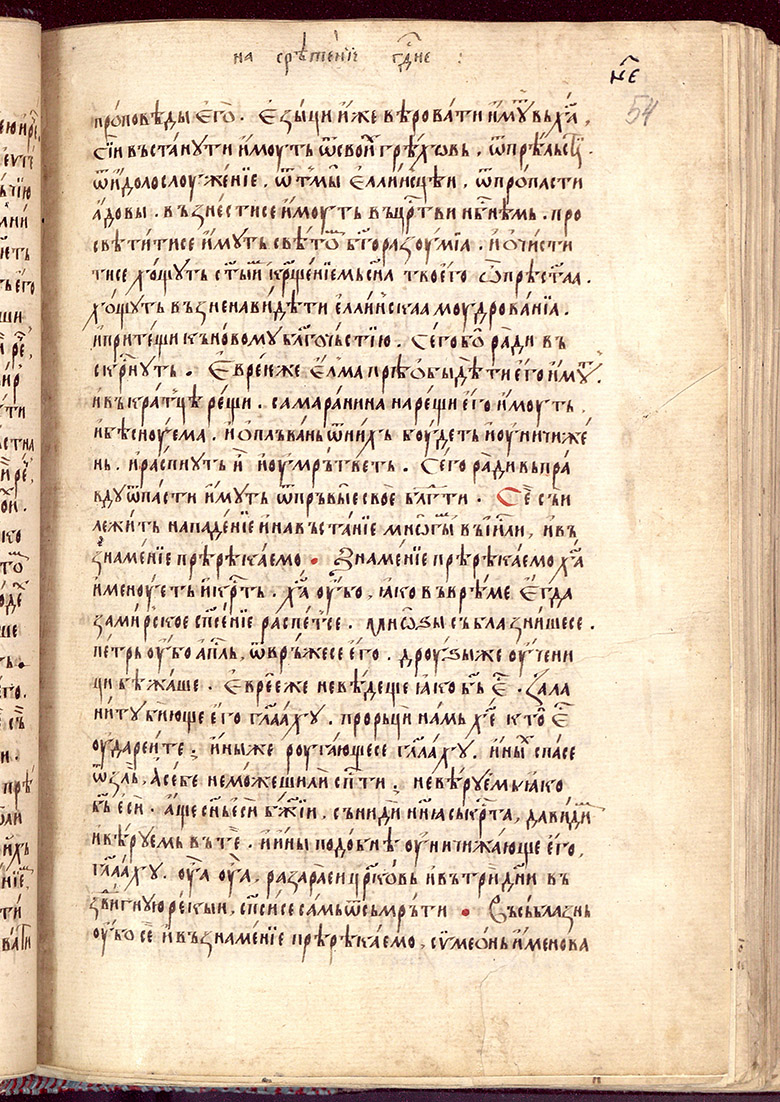 на срѣтенїе гⷭ҇не :
н҃е
54
проповѣды его . Езыци иже вѣровати имꙋт въ хⷭ҇а ,
сїи въстанути имоуть ѿ свои҆х грѣховь , ѿ прѣльсти .
ѿ идолослоуженїе , ѿ тмы еллиньскеи , ѿ пропасти
адовы . възнестисе имоуть въ црⷭ҇тви нбⷭ҇нѣмь . про
свѣтитисе имуть свѣтом бг҃оразоумїа . и очисти
тисе хощуть ст҃ыим крⷭ҇щенїемь сп҃са твоего ѿ прѣстꙋпа .
хощуть възненавидѣти елинскаа моудрованїа .
и притещи къ новому бл҃гочьстїю . Сего бо ради въ
скрⷭ҇нуть . Евреи же елма прѣобыдѣти его имꙋт .
и въкратцѣ рещи . самаранина нарещи его имоуть ,
и бѣсноуема . и оплъвань ѿ них боудеть и оуничиже
нь . и распнуть и и оумрътветь . Сего ради въ пра
вду ѿпасти имуть ѿ прьвые свое бл҃гⷣти . Се съи
лежить нападенїе и на въстанїе многым въ їили , и въ
знаменїе прѣрѣкаемо • Знаменїе прѣрѣкаемо хⷭ҇а
именоуеть и крⷭ҇ть . хⷭ҇а оубо , іако въ врѣме егда
за мирское сп҃сенїе распетсе . мнѡзы съблазнишесе .
петрь оубо апⷭ҇ль , ѿвръжесе его . дроузы же оучени
ци бѣжаше . Еврее же не вѣдеще іако бъ҃ е҆ⷭ . За ла
ниту бїюще его гл҃ааху . прорьци намь хе҃ кто еⷭ
оудареи те ; ины же роугающесе гл҃ааху . иных спасе
ѿ зль , а себе не можеши ли сп҃сти ; не вѣруемы іако
бъ҃ еси . аще сн҃ь еси бж҃їи , съниди нн҃іа съ крⷭ҇та , да видим
и вѣруемь въ те . и ины подобнѣ оуничижающе его ,
гл҃ааху . оуа оуа , разараеи црⷭ҇ковь и въ три дн҃и въ
звигную рекыи , сп҃си се самь ѿ съмръти • Въ съблазнь
оубо се и въ знаменїе прѣрѣкаемо , сѵмеонь именова